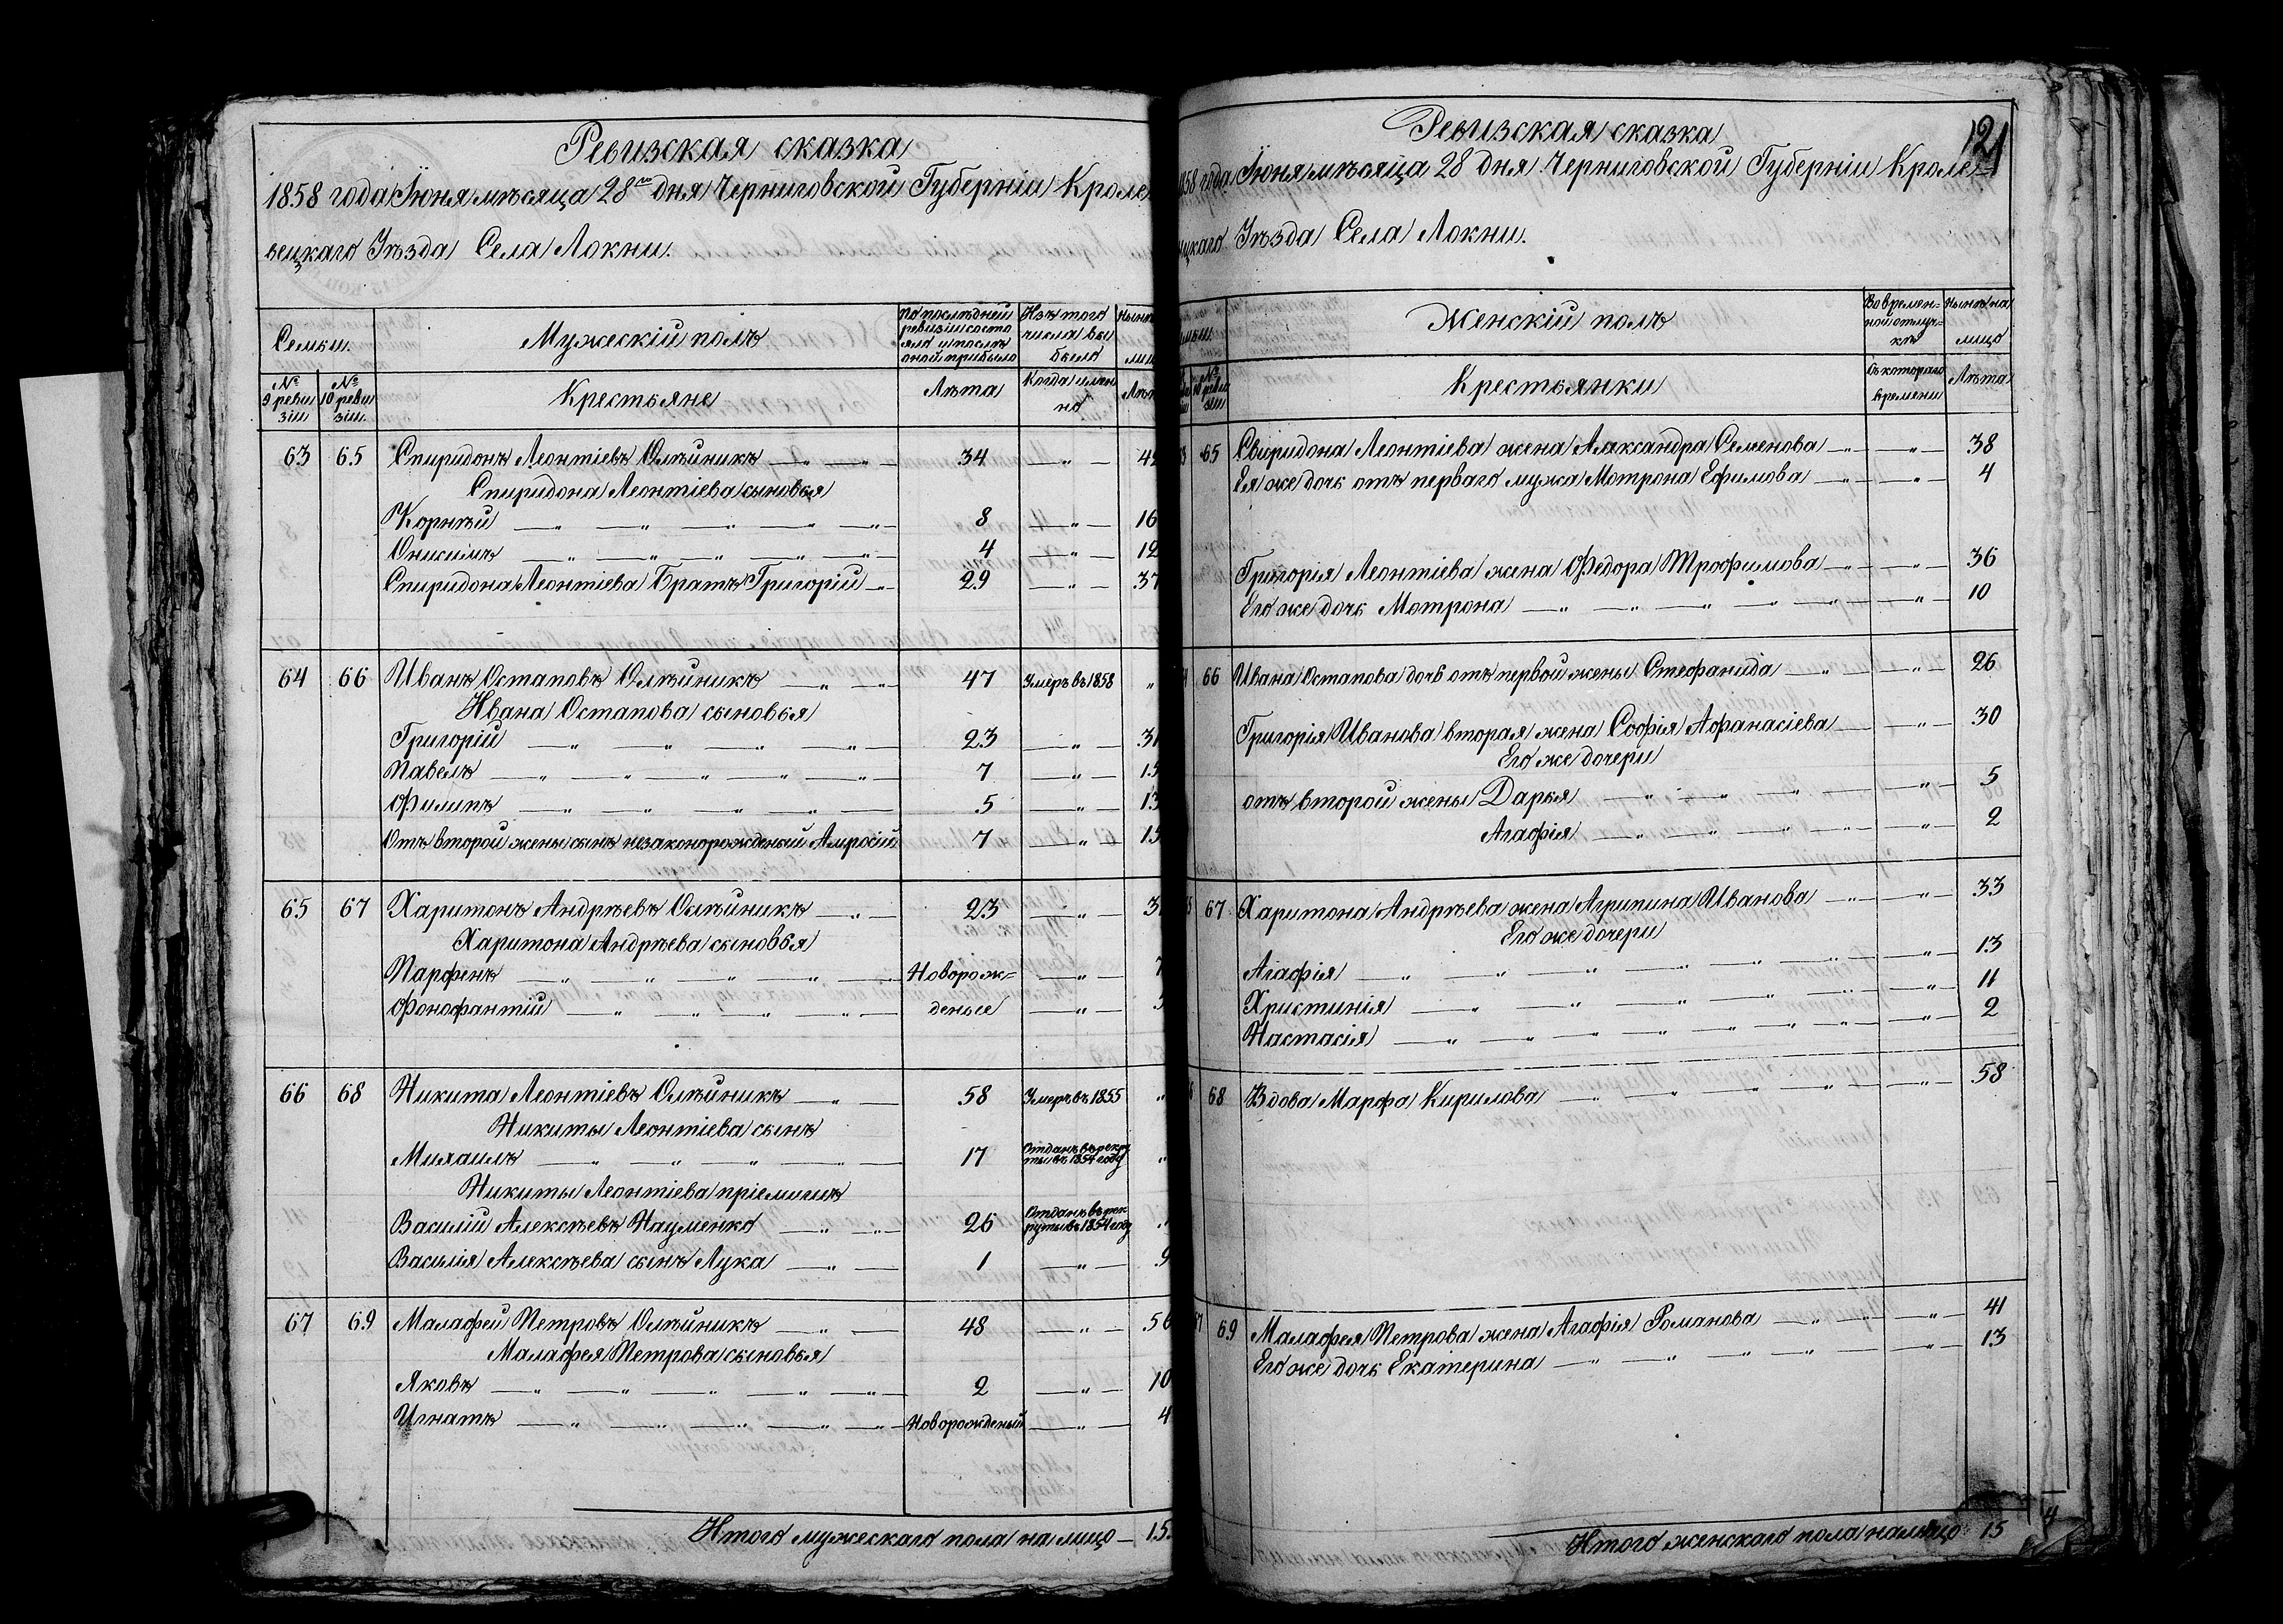 Ревизская сказка
1858 года Іюня мѣсяца 28го дня Черниговской Губерніи Кроле
вецкаго Уѣзда Села Локни.
Семьи. Мужескій полъ По послѣдней ревизіи состояло и послѣ оной прибыло Изъ того числа выбыло Нынѣ
№ 9 ревизіи № 10 ревизіи Крестьяне Лѣта Когда именно
63 65 Спиридонъ Леонтіевъ Олѣйникъ — „ — „ — 34 — „ — 42
Спиридона Леонтіева сыновья
Корнѣй — „ — „ — „ — „ — „ — 8 — „ — 16
Оникимъ — „ — „ — „ — „ — „ — 4 — „ — 12
Спиридона Леонтіева Братъ Григорій — „ — 29 — „ — 37
64 66 Иванъ Остаповъ Олѣйникъ — „ — „ — 47 Умеръ въ 1858 „
Ивана Остапова сыновья
Григорій — „ — „ — „ — „ — 23 — „ — 31
Павелъ — „ — „ — „ — „ — „ — 7 — „ — 15
Филипъ — „ — „ — „ — „ — 5 — „ — 13
Отъ второй жены сынъ незаконорожденый Амросій 7 — „ — 15
65 67 Харитонъ Андрѣевъ Олѣйникъ — „ — 23 — „ — 3
Харитона Андрѣева сыновья
Парфенъ — „ — „ — „ — „ — Новорож= — „ — 7
Фонофантій — „ — „ — „ — „ — деные — „ —
66 68 Никита Леонтіевъ Олѣйникъ — „ — 58 Умеръ въ 1855 „
Никиты Леонтіева сынъ
Михаилъ — „ — „ — „ — „ — 17 Отданъ въ рекруты въ 1854 году „
Никиты Леонтіева пріемишъ
Василій Алексѣевъ Науменко — „ — „ — 26 Отданъ въ рекруты въ 1854 году „
Василія Алексѣева сынъ Лука — „ — 1 — „ — 9
67 69 Малафей Петровъ Олѣйникъ — „ — 48 — „ — 56
Малафея Петрова сыновья
Яковъ — „ — „ — „ — „ — „ — 2 — „ — 10
Игнатъ — „ — „ — „ — „ — „ — Новорожденый — „ — 4
Итого мужескаго пола на лицо — 15
121
Ревизская сказка
1858 года Іюня мѣсяца 28 дня Черниговской Губерніи Кроле=
вецкаго Уѣзда Села Локни.
Женскій полъ Во временной отлучкѣ Нынѣ на лицо
Крестьянки Съ котораго времени Лѣта
65 Свиридона Леонтіева жена Александра Семенова — „ — „ — 38
Ея же дочь отъ перваго мужа Мотрона Ефимова — „ — „ — 4
Григорія Леонтіева жена Федора Трофимова — „ — „ — 36
Его же дочь Мотрона — „ — „ — „ — „ — „ — „ — 10
66 Ивана Остапова дочь отъ первой жены Стефанида — „ — „ — 26
Григорія Иванова вторая жена Софія Афанасіева — — „ — 30
Его же дочери
отъ второй жены Дарья — „ — „ — „ — „ — 5
Агафія — „ — „ — „ — „ — „ — 2
67 Харитона Андрѣева жена Агрипина Иванова — „ — „ — 33
Его же дочери
Агафія — „ — „ — „ — „ — „ — „ — „ — 13
Христинія — „ — „ — „ — „ — „ — „ — 11
Настасія — „ — „ — „ — „ — „ — „ — „ — 2
68 Вдова Марфа Кирилова — „ — „ — „ — „ — „ — 58
69 Малафея Петрова жена Агафія Романова — „ — „ — „ — 41
Его же дочь Екатерина — „ — „ — „ — „ — — „ — 13
Итого женскаго пола налицо 15
4